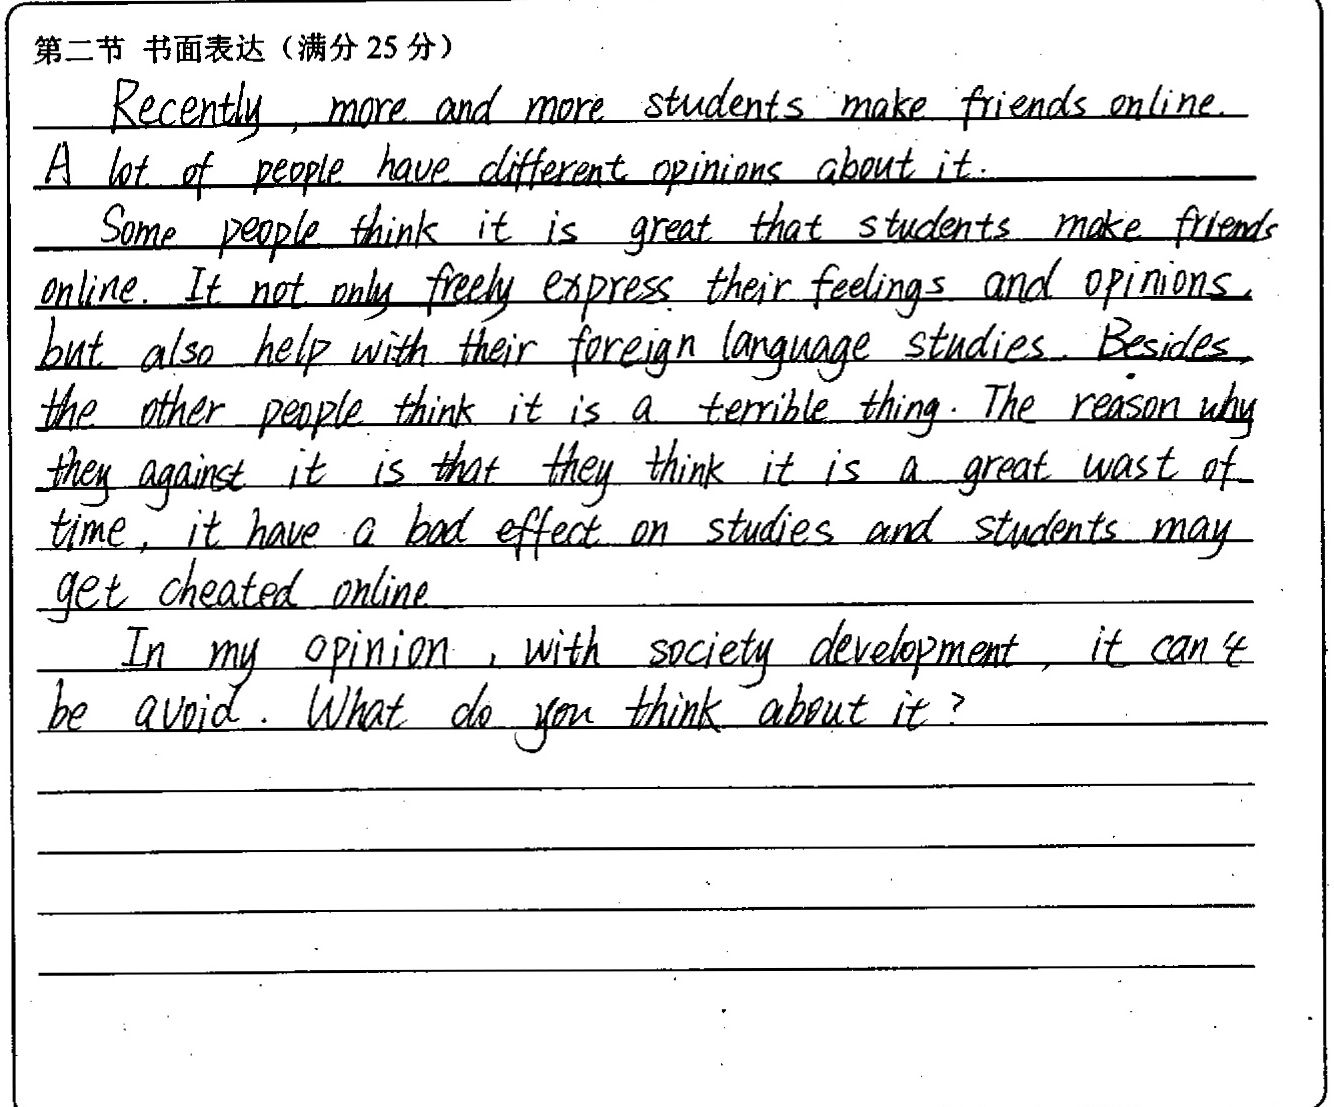 第二节 书面表达（满分 25 分）
Recently, more and more students make friends online.
A lot of people have different opinions about it.
Some people think it is great that students make friends
online. It not only freely express their feelings and opinions,
but also help with their foreign language studies. Besides,
the other people think it is a terrible thing. The reason why
they against it is that they think it is a great wast of
time, it have a bad effect on studies and students may
get cheated online
In my opinion, with society development, it can't
be avoid. What do you think about it?